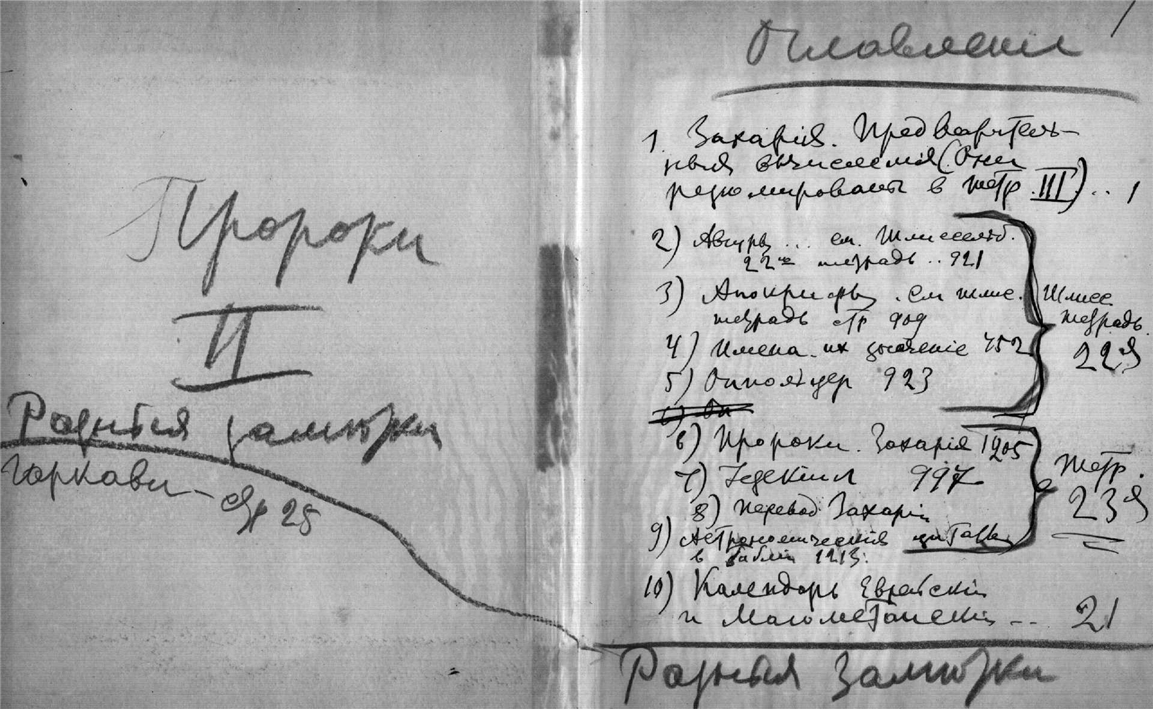 Пророки
II
Разныя замѣтки
Гаркави — стр 25
Оглавленіе
1. Захарія. Предварітель-
ныя вычисленія (Они
резюмированы в тетр. III) .. 1
2) Авгуры ... см. Шлиссельб.
22ая тетрадь .. 921
3) Апокрифы . см шлис.
тетрадь стр 909
4) Имена. их значеніе 752
5)  923
Шлисс
тетрадь
22я
6) Пророки. Захарія 1905
7) Іезекіил 997
8) перевод Захаріи
9) Астрономическія цитаты
в Библіи 1213.
тетр.
23я
10) Календарь Еврейскій
и Магометанскій ... 21
Разныя Замѣтки